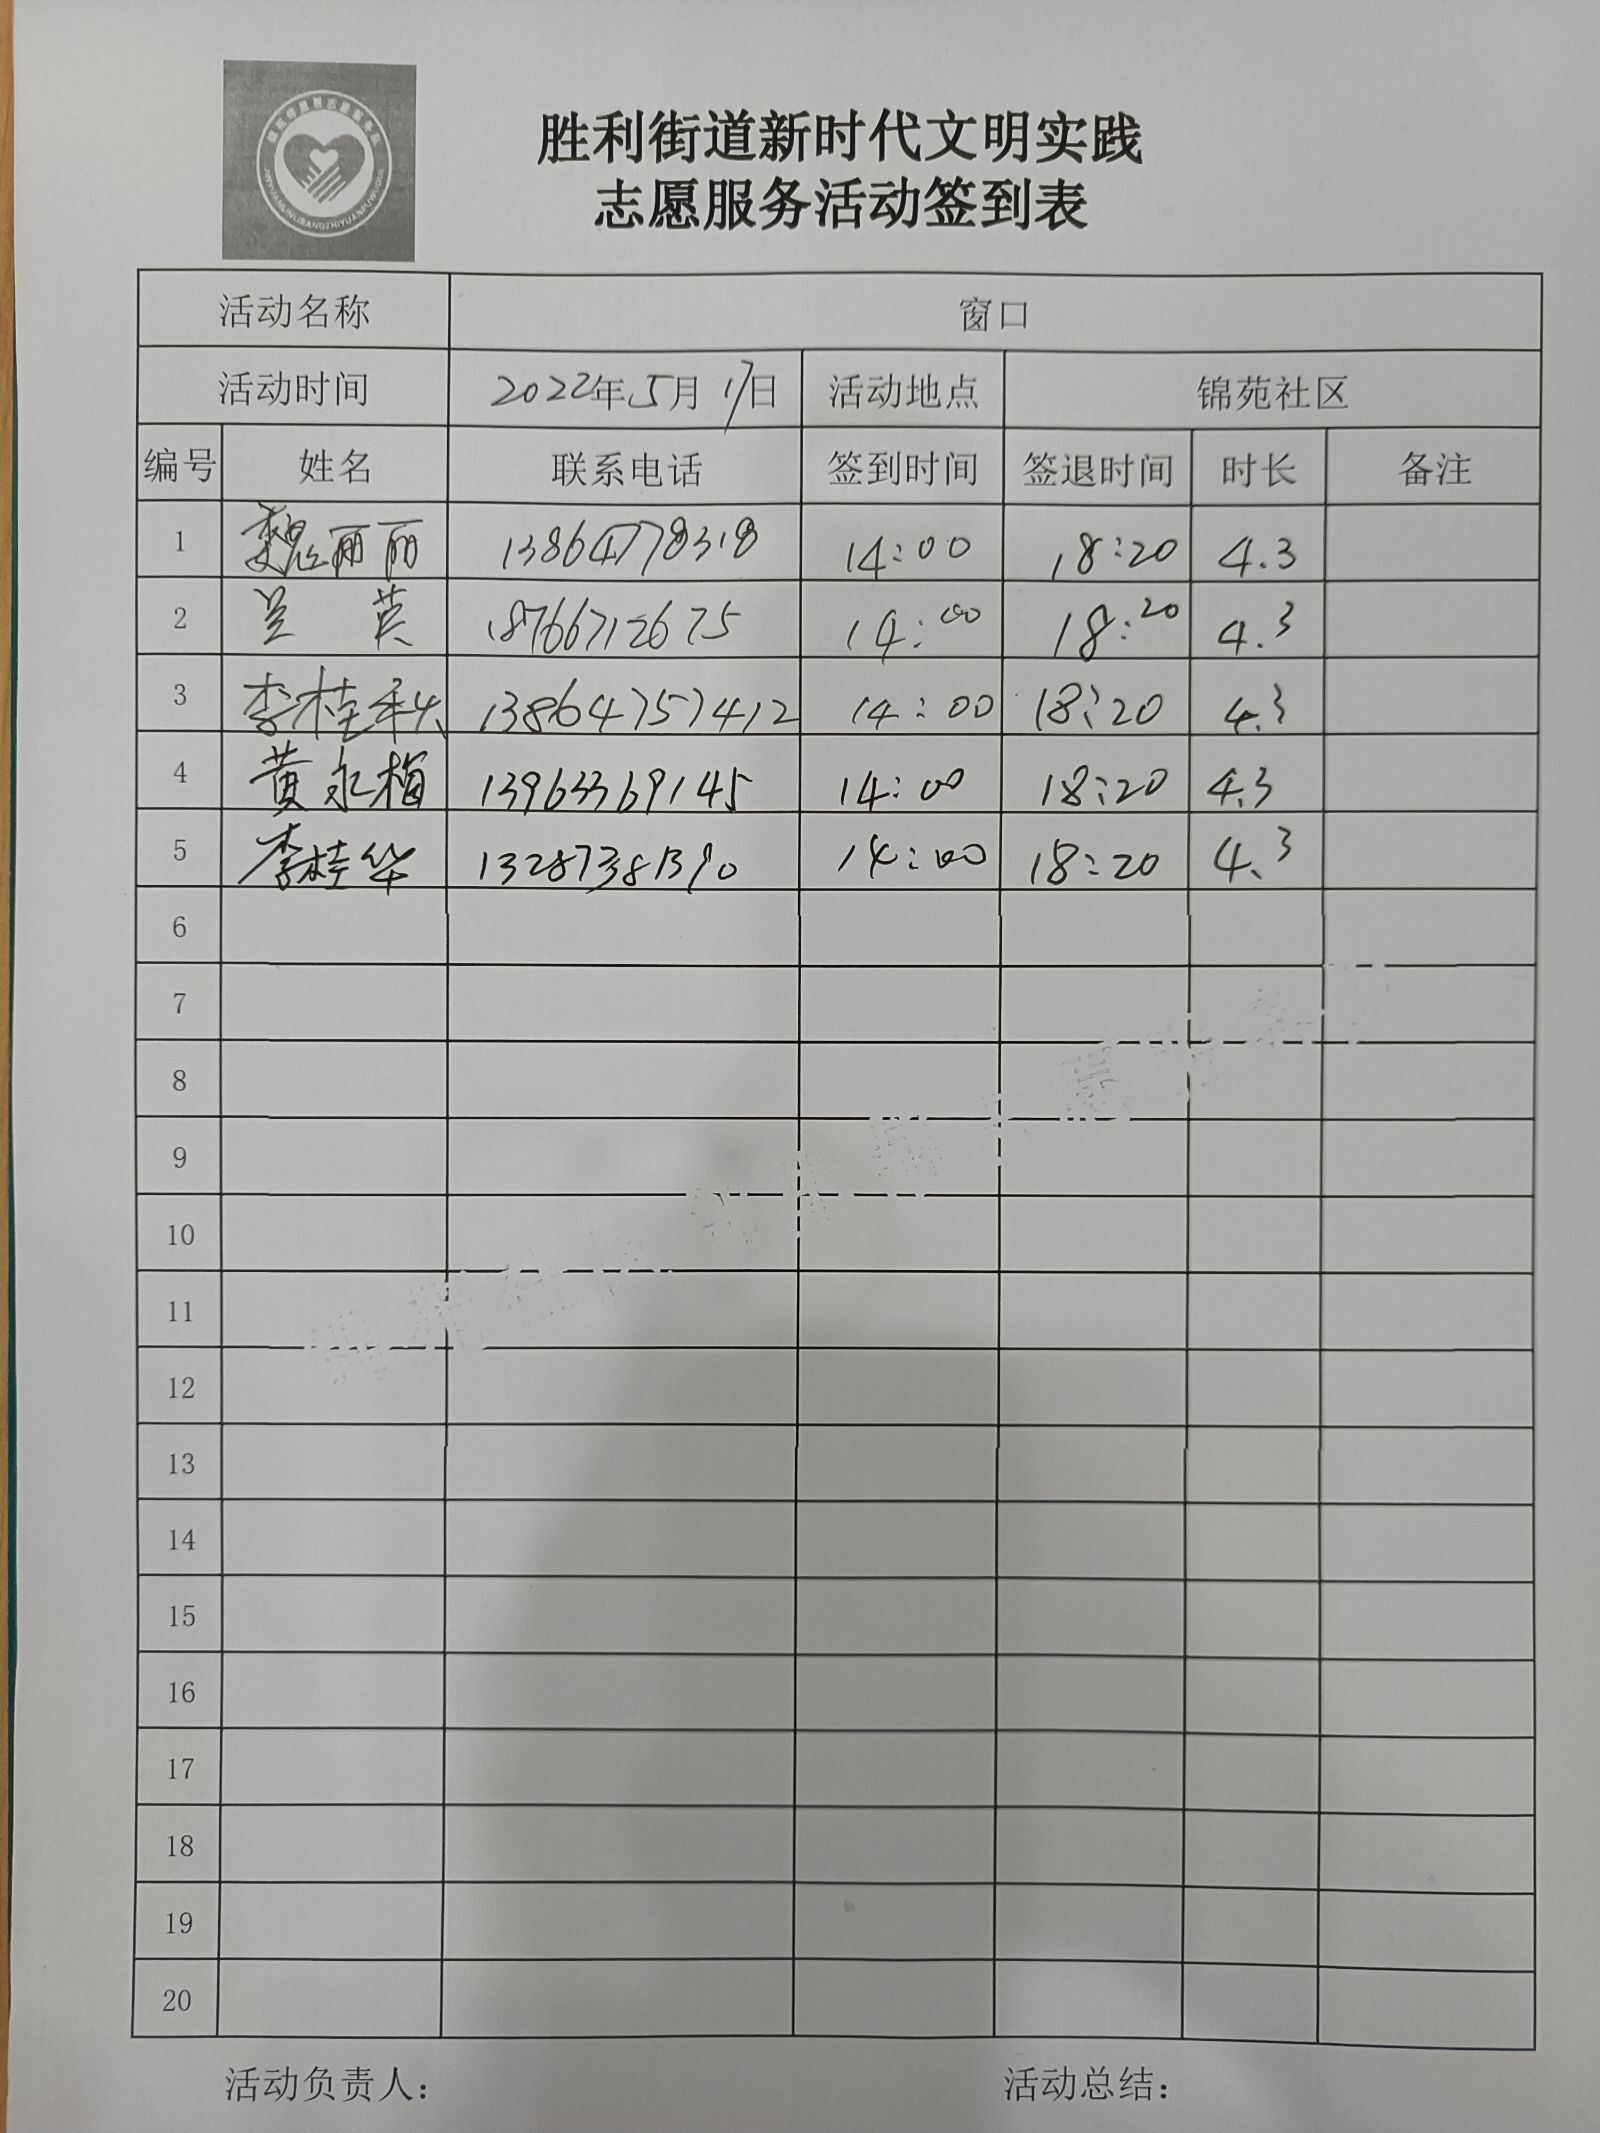 胜利街道新时代文明实践
志愿服务活动签到表
活动名称 窗口
活动时间 2022年5月17日 活动地点 锦苑社区
编号 姓名 联系电话 签到时间 签退时间 时长 备注
1 魏丽丽 13864778318 14:00 18:20 4.3
2 吴英 18766712675 14:00 18:20 4.3
3 李桂秋 13864757412 14:00 18:20 4.3
4 黄永梅 13963369145 14:00 18:20 4.3
5 李桂华 13287381390 14:00 18:20 4.3
6
7
8
9
10
11
12
13
14
15
16
17
18
19
20
活动负责人： 活动总结：